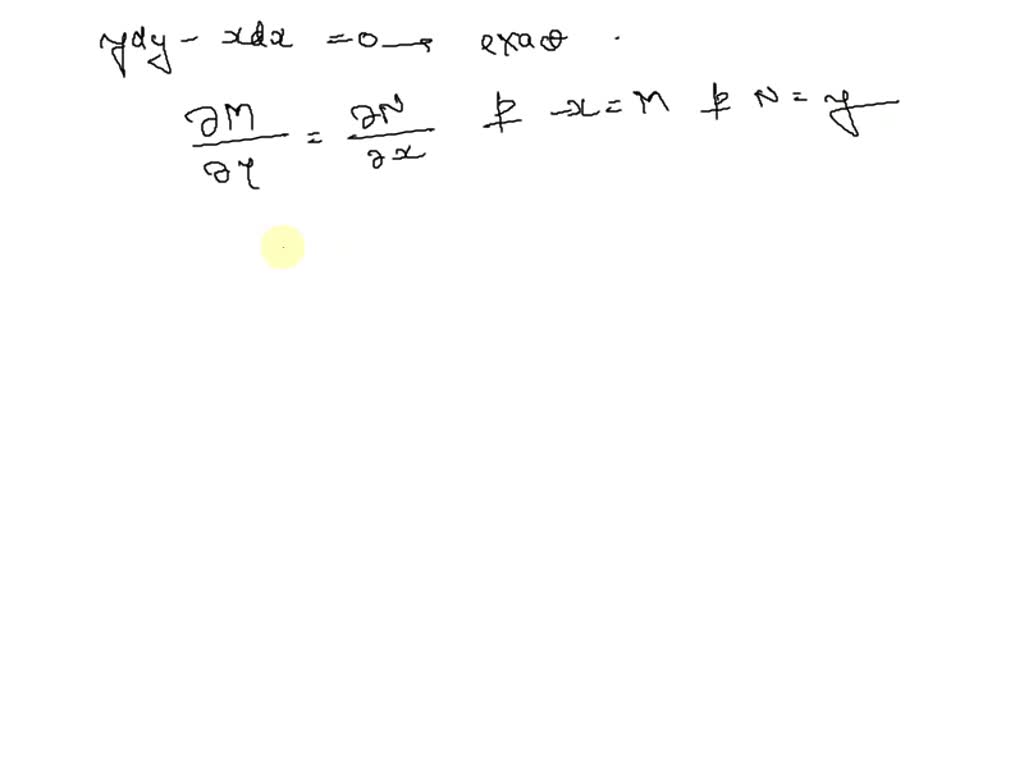 ydy - xdx = 0 → exact .
∂M/∂y = ∂N/∂x & -x = M & N = y